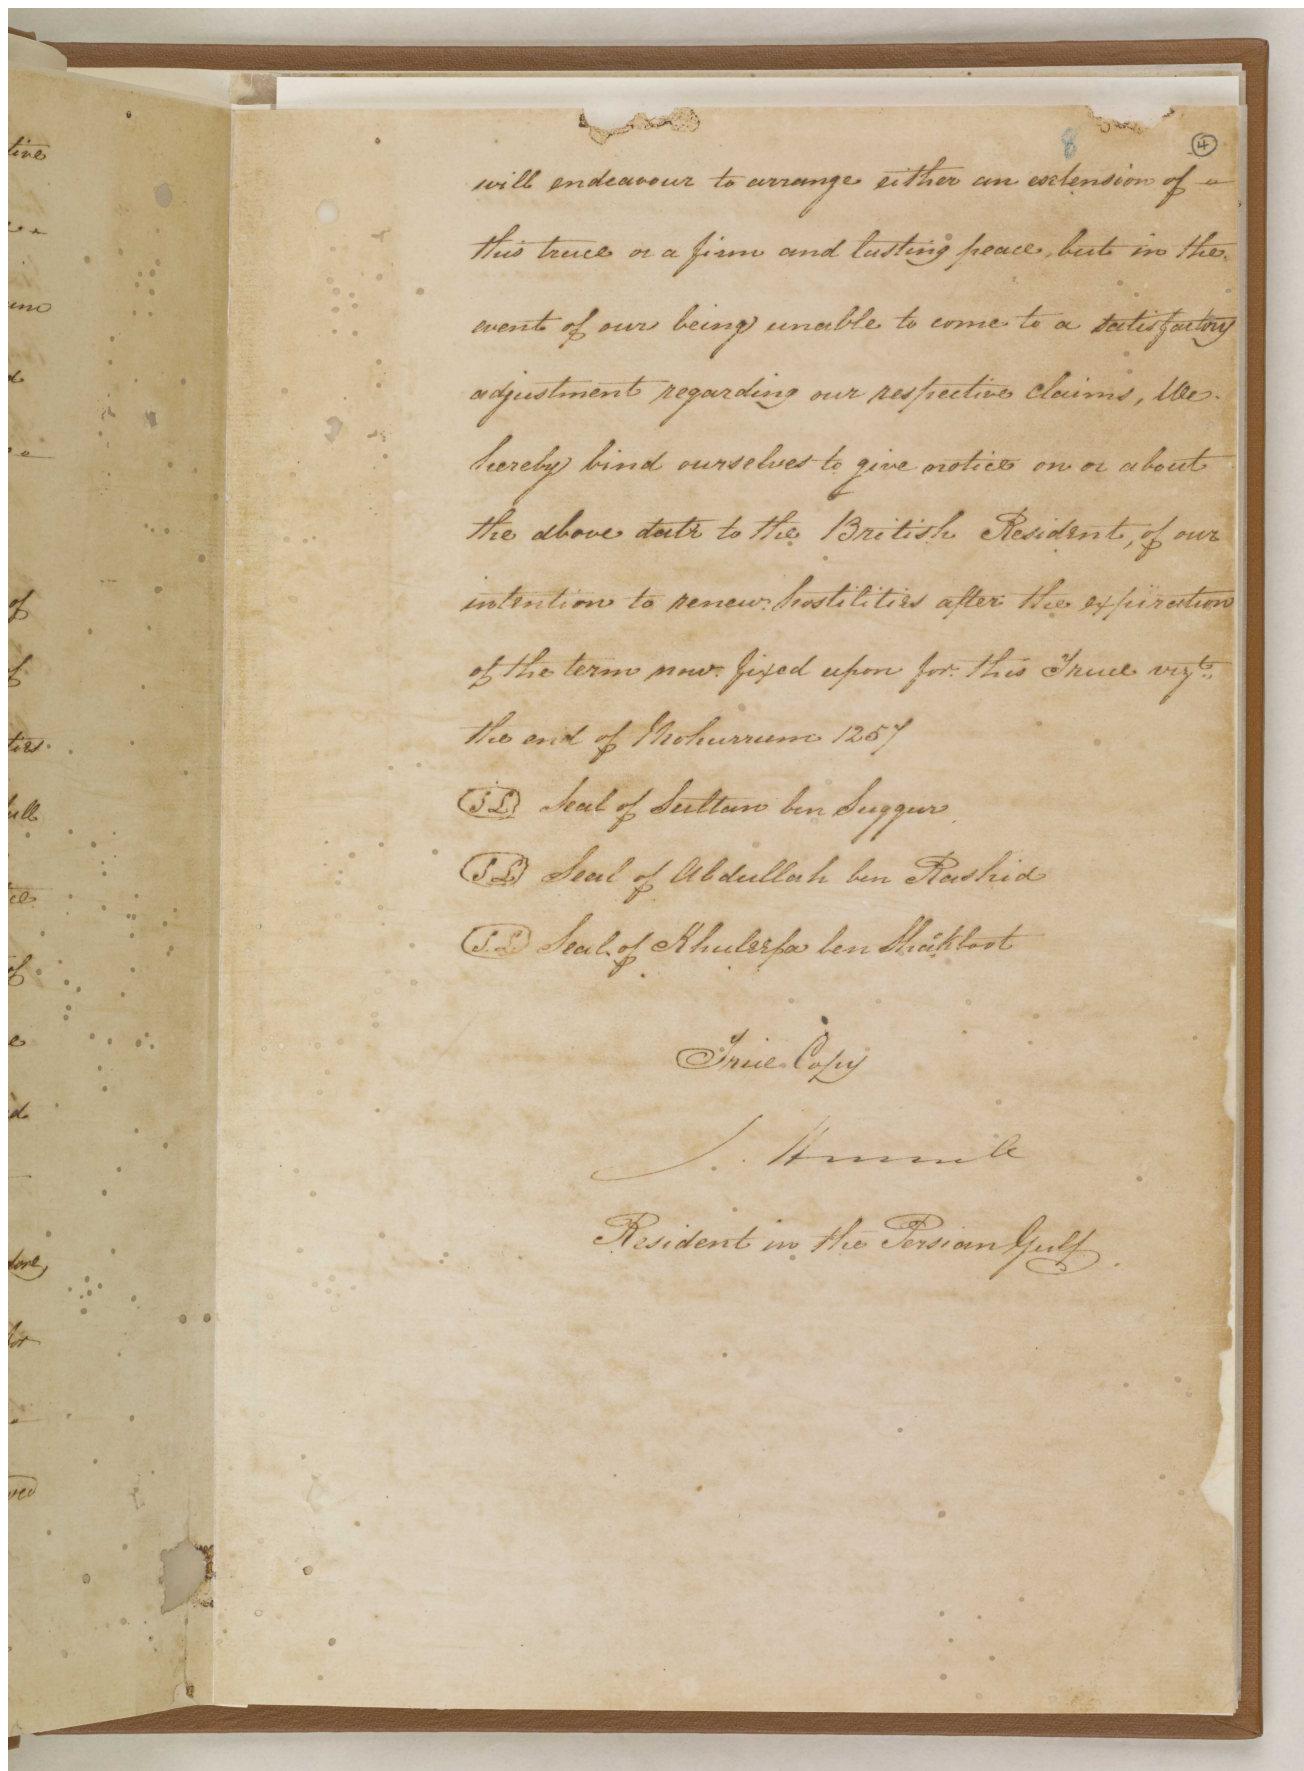 8
4
will endeavour to arrange either an extension of
this truce or a firm and lasting peace, but in the
event of our being unable to come to a satisfactory
adjustment regarding our respective claims, We
hereby bind ourselves to give notice on or about
the above date to the British Resident, of our
intention to renew hostilities after the expiration
of the term now fixed upon for this Truce vizt.
the end of Mohurrum 1257
S.L. Seal of Sultan ben Suggur
S.L. Seal of Abdullah ben Rashid
S.L. Seal of Khuleefa ben Shakboot
True Copy
S. Hennell
Resident in the Persian Gulf.